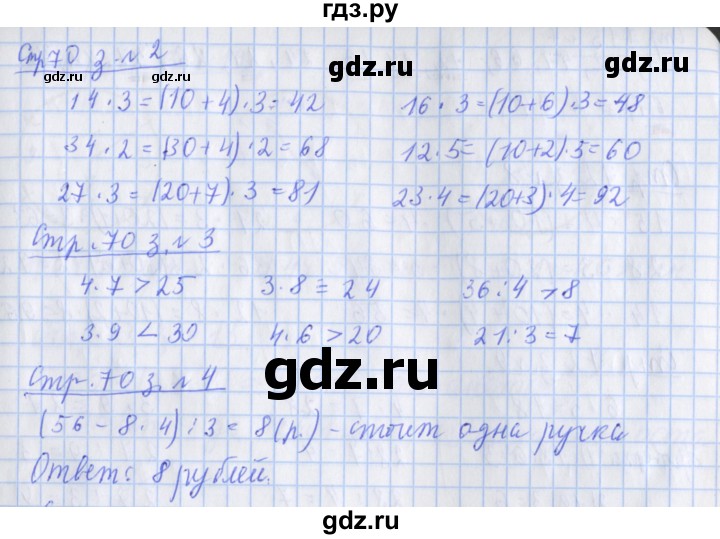 гдз.ру
Стр 70 з. №2
gdz.ru gdz.ru gdz.ru
14 · 3 = (10 + 4) · 3 = 42 16 · 3 = (10+6) · 3 = 48
34 · 2 = (30+4) · 2 = 68 12 · 5 = (10+2) · 5 = 60
27 · 3 = (20+7) · 3 = 81 23 · 4 = (20+3) · 4 = 92
gdz.ru gdz.ru
Стр. 70 з. №3
4 · 7 > 25 3 · 8 = 24 36 : 4 > 8
3 · 9 < 30 4 · 6 > 20 21 : 3 = 7
gdz.ru
Стр. 70 з. №4
(56 - 8 · 4) : 3 = 8 (р.) - стоит одна ручка
gdz.ru gdz.ru
Ответ: 8 рублей.
gdz.ru